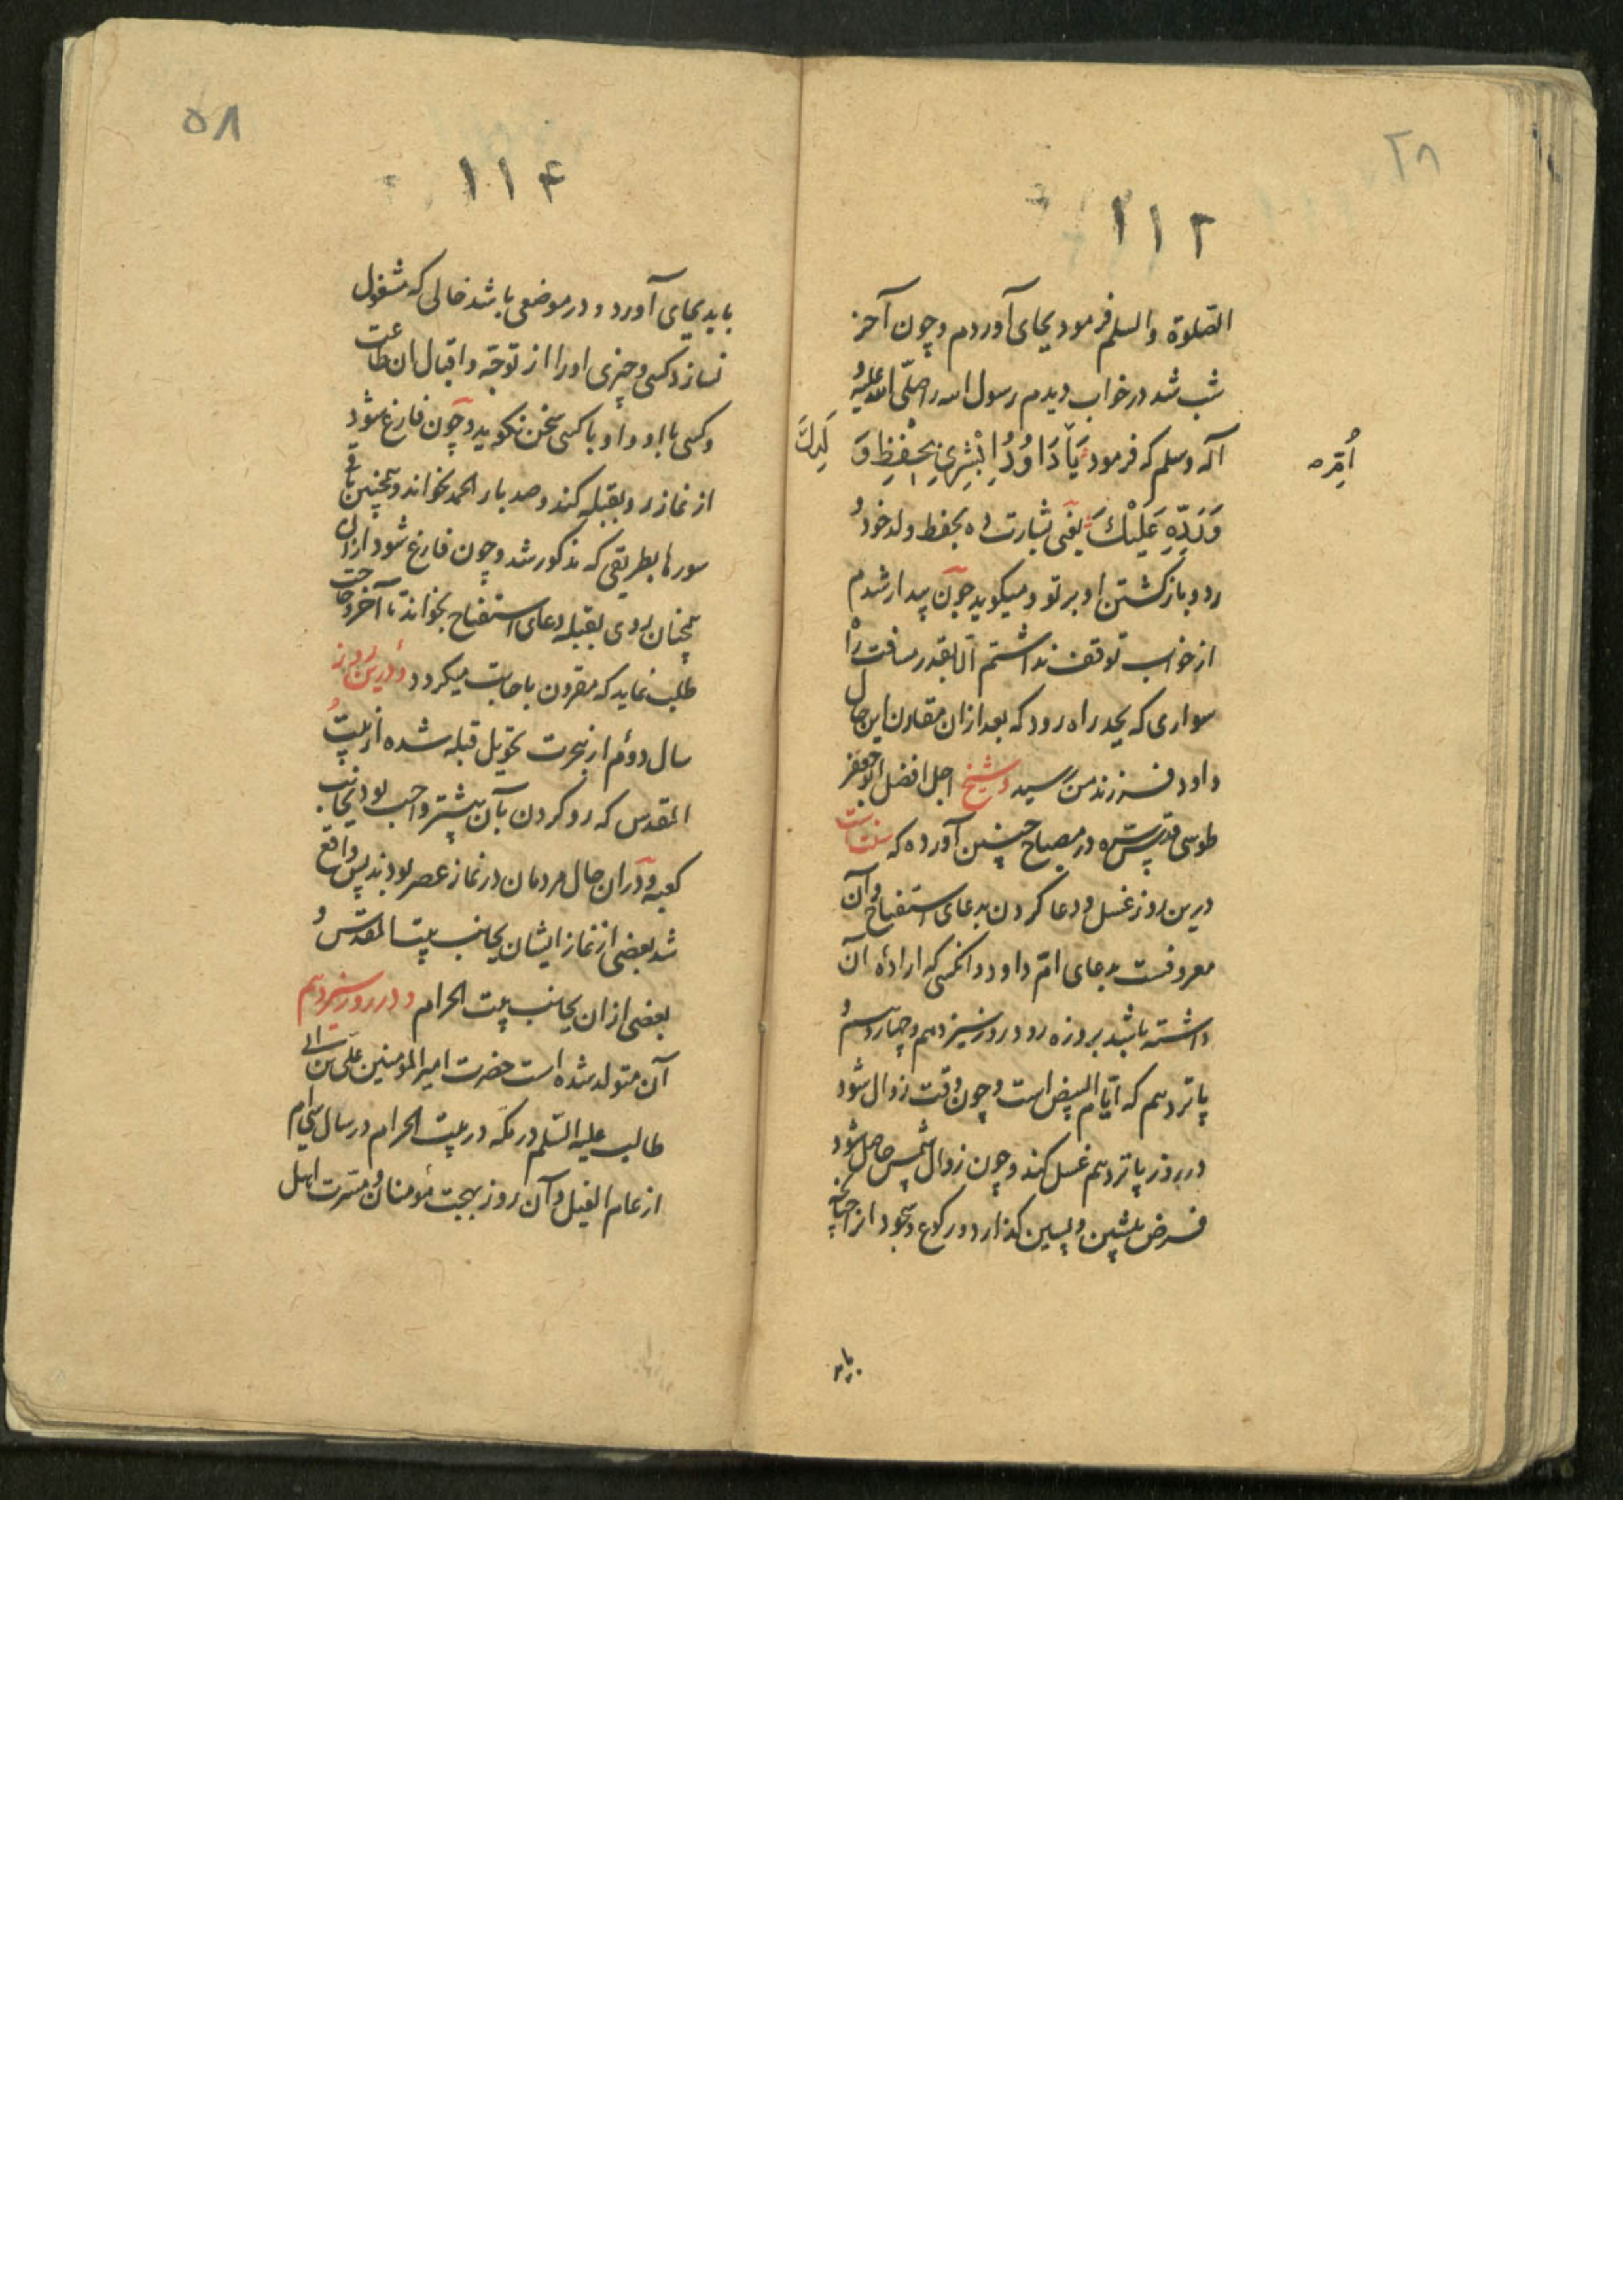 ۱۱۲
الصلوة والسلم فرمود بجای آوردم و چون آخر
شب شد در خواب دیدم رسول الله را صلّی الله علیه و
آله و سلم که فرمود یَا دَاوُدُ اِبْشِرِی بِحِفْظِ وَ لَدِكَ
اُمّ
وَرَدِّهِ عَلَیْكَ یعنی بشارت ده بحفظ ولد خود و
رد و بازگشتن او بر تو و میگوید چون بیدار شدم
از خواب توقف نداشتم الا بقدر مسافت راه
سواری که بجد راه رود که بعد از ان مقارن این حال
داود فرزند من رسید و شیخ اجل افضل ابو جعفر
طوسی قدس سره در مصباح چنین آورده که سنت است
درین روز غسل و دعا کردن بدعای استفتاح و آن
معروفست بدعای امّ داود و انکسی که ارادهٔ آن
داشته باشد بروزه رود روز سیزدهم و چهاردهم و
پانزدهم که ایّام البیض است و چون وقت زوال شود
در روز پانزدهم غسل کند و چون زوال شمس حاصل شود
فرض پیشین و پسین گذارد و رکوع و سجود انرا چنانچه
باید
۵۸
۱۱۴
باید بجای آورد و در موضعی باشد خالی که مشغول
نسازد کسی و چیزی او را از توجّه و اقبال ان طاعت
و کسی با او و او با کسی سخن نگوید و چون فارغ شود
از نماز رو بقبله کند و صد بار الحمد بخواند و همچنین باقی
سورها بطریقی که مذکور شد و چون فارغ شود از ان
همچنان روی بقبله دعای استفتاح بخواند تا آخر و حاجت
طلب نماید که مقرون باجابت میکردد و درین روز
سال دوّم از هجرت تحویل قبله شده از بیت
المقدس که رو کردن بآن پیشتر واجب بود بجانب
کعبه و در ان حال مردمان در نماز عصر بودند پس واقع
شد بعضی از نماز ایشان بجانب بیت المقدس و
بعضی از ان بجانب بیت الحرام و در روز سیزدهم
آن متولد شده است حضرت امیر المومنین علی بن ابی
طالب علیه السّلم در مکّه در بیت الحرام در سال سی‌ام
از عام الفیل و آن روز بهجت مؤمنان و مسرت اهل